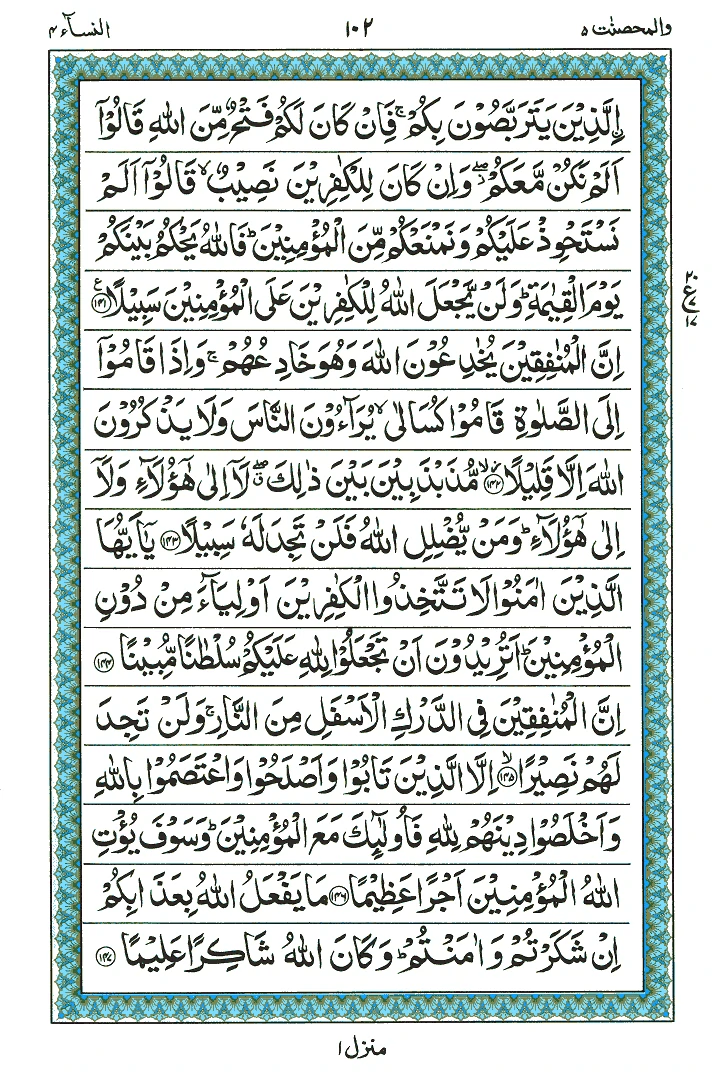 والمحصنٰت ۵ ۱۰۲ النسآء ۴
الَّذِيْنَ يَتَرَبَّصُوْنَ بِكُمْ ۚ فَاِنْ كَانَ لَكُمْ فَتْحٌ مِّنَ اللّٰهِ قَالُوْۤا
اَلَمْ نَكُنْ مَّعَكُمْ ۖ وَاِنْ كَانَ لِلْكٰفِرِيْنَ نَصِيْبٌ ۙ قَالُوْۤا اَلَمْ
نَسْتَحْوِذْ عَلَيْكُمْ وَنَمْنَعْكُمْ مِّنَ الْمُؤْمِنِيْنَ ؕ فَاللّٰهُ يَحْكُمُ بَيْنَكُمْ
يَوْمَ الْقِيٰمَةِ ؕ وَلَنْ يَّجْعَلَ اللّٰهُ لِلْكٰفِرِيْنَ عَلَى الْمُؤْمِنِيْنَ سَبِيْلًا ﴿۱۴۱﴾
اِنَّ الْمُنٰفِقِيْنَ يُخٰدِعُوْنَ اللّٰهَ وَهُوَ خَادِعُهُمْ ۚ وَاِذَا قَامُوْۤا
اِلَى الصَّلٰوةِ قَامُوْا كُسَالٰى ۙ يُرَآءُوْنَ النَّاسَ وَلَا يَذْكُرُوْنَ
اللّٰهَ اِلَّا قَلِيْلًا ﴿۱۴۲﴾ مُّذَبْذَبِيْنَ بَيْنَ ذٰلِكَ ۖ لَاۤ اِلٰى هٰۤؤُلَآءِ وَلَاۤ
اِلٰى هٰۤؤُلَآءِ ؕ وَمَنْ يُّضْلِلِ اللّٰهُ فَلَنْ تَجِدَ لَهٗ سَبِيْلًا ﴿۱۴۳﴾ يٰۤاَيُّهَا
الَّذِيْنَ اٰمَنُوْا لَا تَتَّخِذُوا الْكٰفِرِيْنَ اَوْلِيَآءَ مِنْ دُوْنِ
الْمُؤْمِنِيْنَ ؕ اَتُرِيْدُوْنَ اَنْ تَجْعَلُوْا لِلّٰهِ عَلَيْكُمْ سُلْطٰنًا مُّبِيْنًا ﴿۱۴۴﴾
اِنَّ الْمُنٰفِقِيْنَ فِى الدَّرْكِ الْاَسْفَلِ مِنَ النَّارِ ۚ وَلَنْ تَجِدَ
لَهُمْ نَصِيْرًا ﴿۱۴۵﴾ اِلَّا الَّذِيْنَ تَابُوْا وَاَصْلَحُوْا وَاعْتَصَمُوْا بِاللّٰهِ
وَاَخْلَصُوْا دِيْنَهُمْ لِلّٰهِ فَاُولٰٓئِكَ مَعَ الْمُؤْمِنِيْنَ ؕ وَسَوْفَ يُؤْتِ
اللّٰهُ الْمُؤْمِنِيْنَ اَجْرًا عَظِيْمًا ﴿۱۴۶﴾ مَا يَفْعَلُ اللّٰهُ بِعَذَابِكُمْ
اِنْ شَكَرْتُمْ وَاٰمَنْتُمْ ؕ وَكَانَ اللّٰهُ شَاكِرًا عَلِيْمًا ﴿۱۴۷﴾
منزل ۱